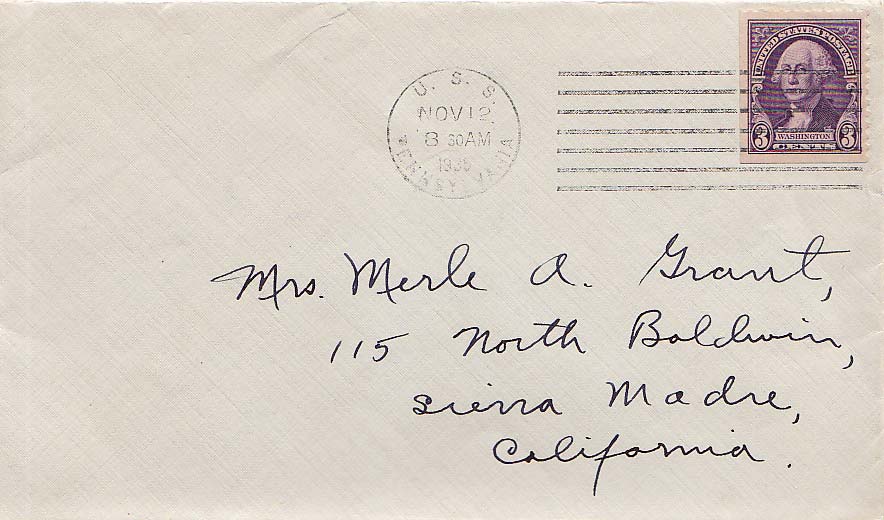 U. S. S.
NOV 12
8 30 AM
1935
PENNSYLVANIA
UNITED STATES POSTAGE
3 WASHINGTON 3
CENTS
Mrs. Merle A. Grant,
115 North Baldwin,
Sierra Madre,
California.